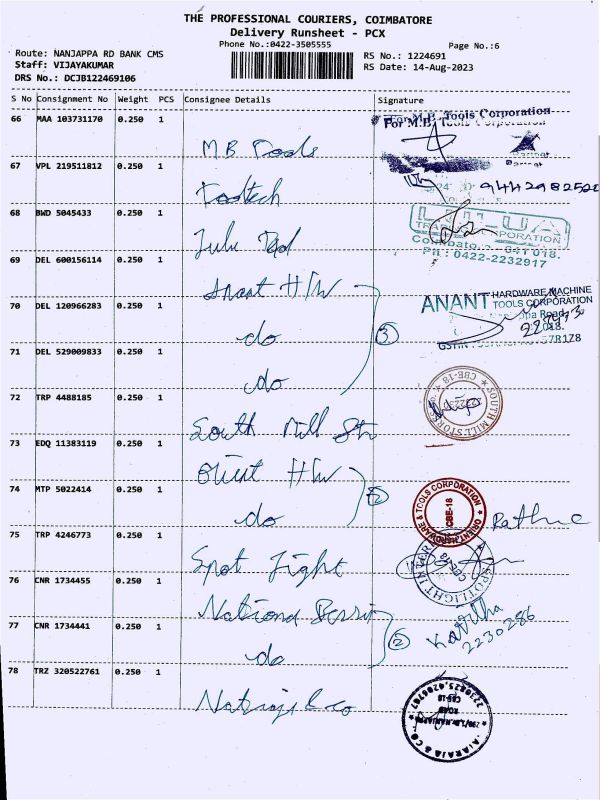 THE PROFESSIONAL COURIERS, COIMBATORE
Delivery Runsheet - PCX
Phone No.:0422-3505555
Page No.:6
Route: NANJAPPA RD BANK CMS
Staff: VIJAYAKUMAR
DRS No.: DCJB122469106
RS No.: 1224691
RS Date: 14-Aug-2023
S No Consignment No Weight PCS Consignee Details Signature
66 MAA 103731170 0.250 1
M.B Tools
For M.B. Tools Corporation
67 VPL 219511812 0.250 1
Tootech
9442982520
68 BWD 5045433 0.250 1
Lulu Trad
LULUA
TRA CORPORATION
Coimbatore 641 018.
Ph : 0422-2232917
69 DEL 600156114 0.250 1
Anant H/W
70 DEL 120966283 0.250 1
do
3
ANANT HARDWARE MACHINE
TOOLS CORPORATION
71 DEL 529009833 0.250 1
do
72 TRP 4488185 0.250 1
South Mill Str
SOUTH MILL STORES
CBE-18
73 EDQ 11383119 0.250 1
Orient H/W
74 MTP 5022414 0.250 1
do
2
ORIENT HARDWARE & TOOLS CORPORATION
CBE-18
75 TRP 4246773 0.250 1
Spot Light
SPOTLIGHT INTER
76 CNR 1734455 0.250 1
National Berrin
77 CNR 1734441 0.250 1
do
2
Kavitha
2230286
78 TRZ 320522761 0.250 1
Natraj & co